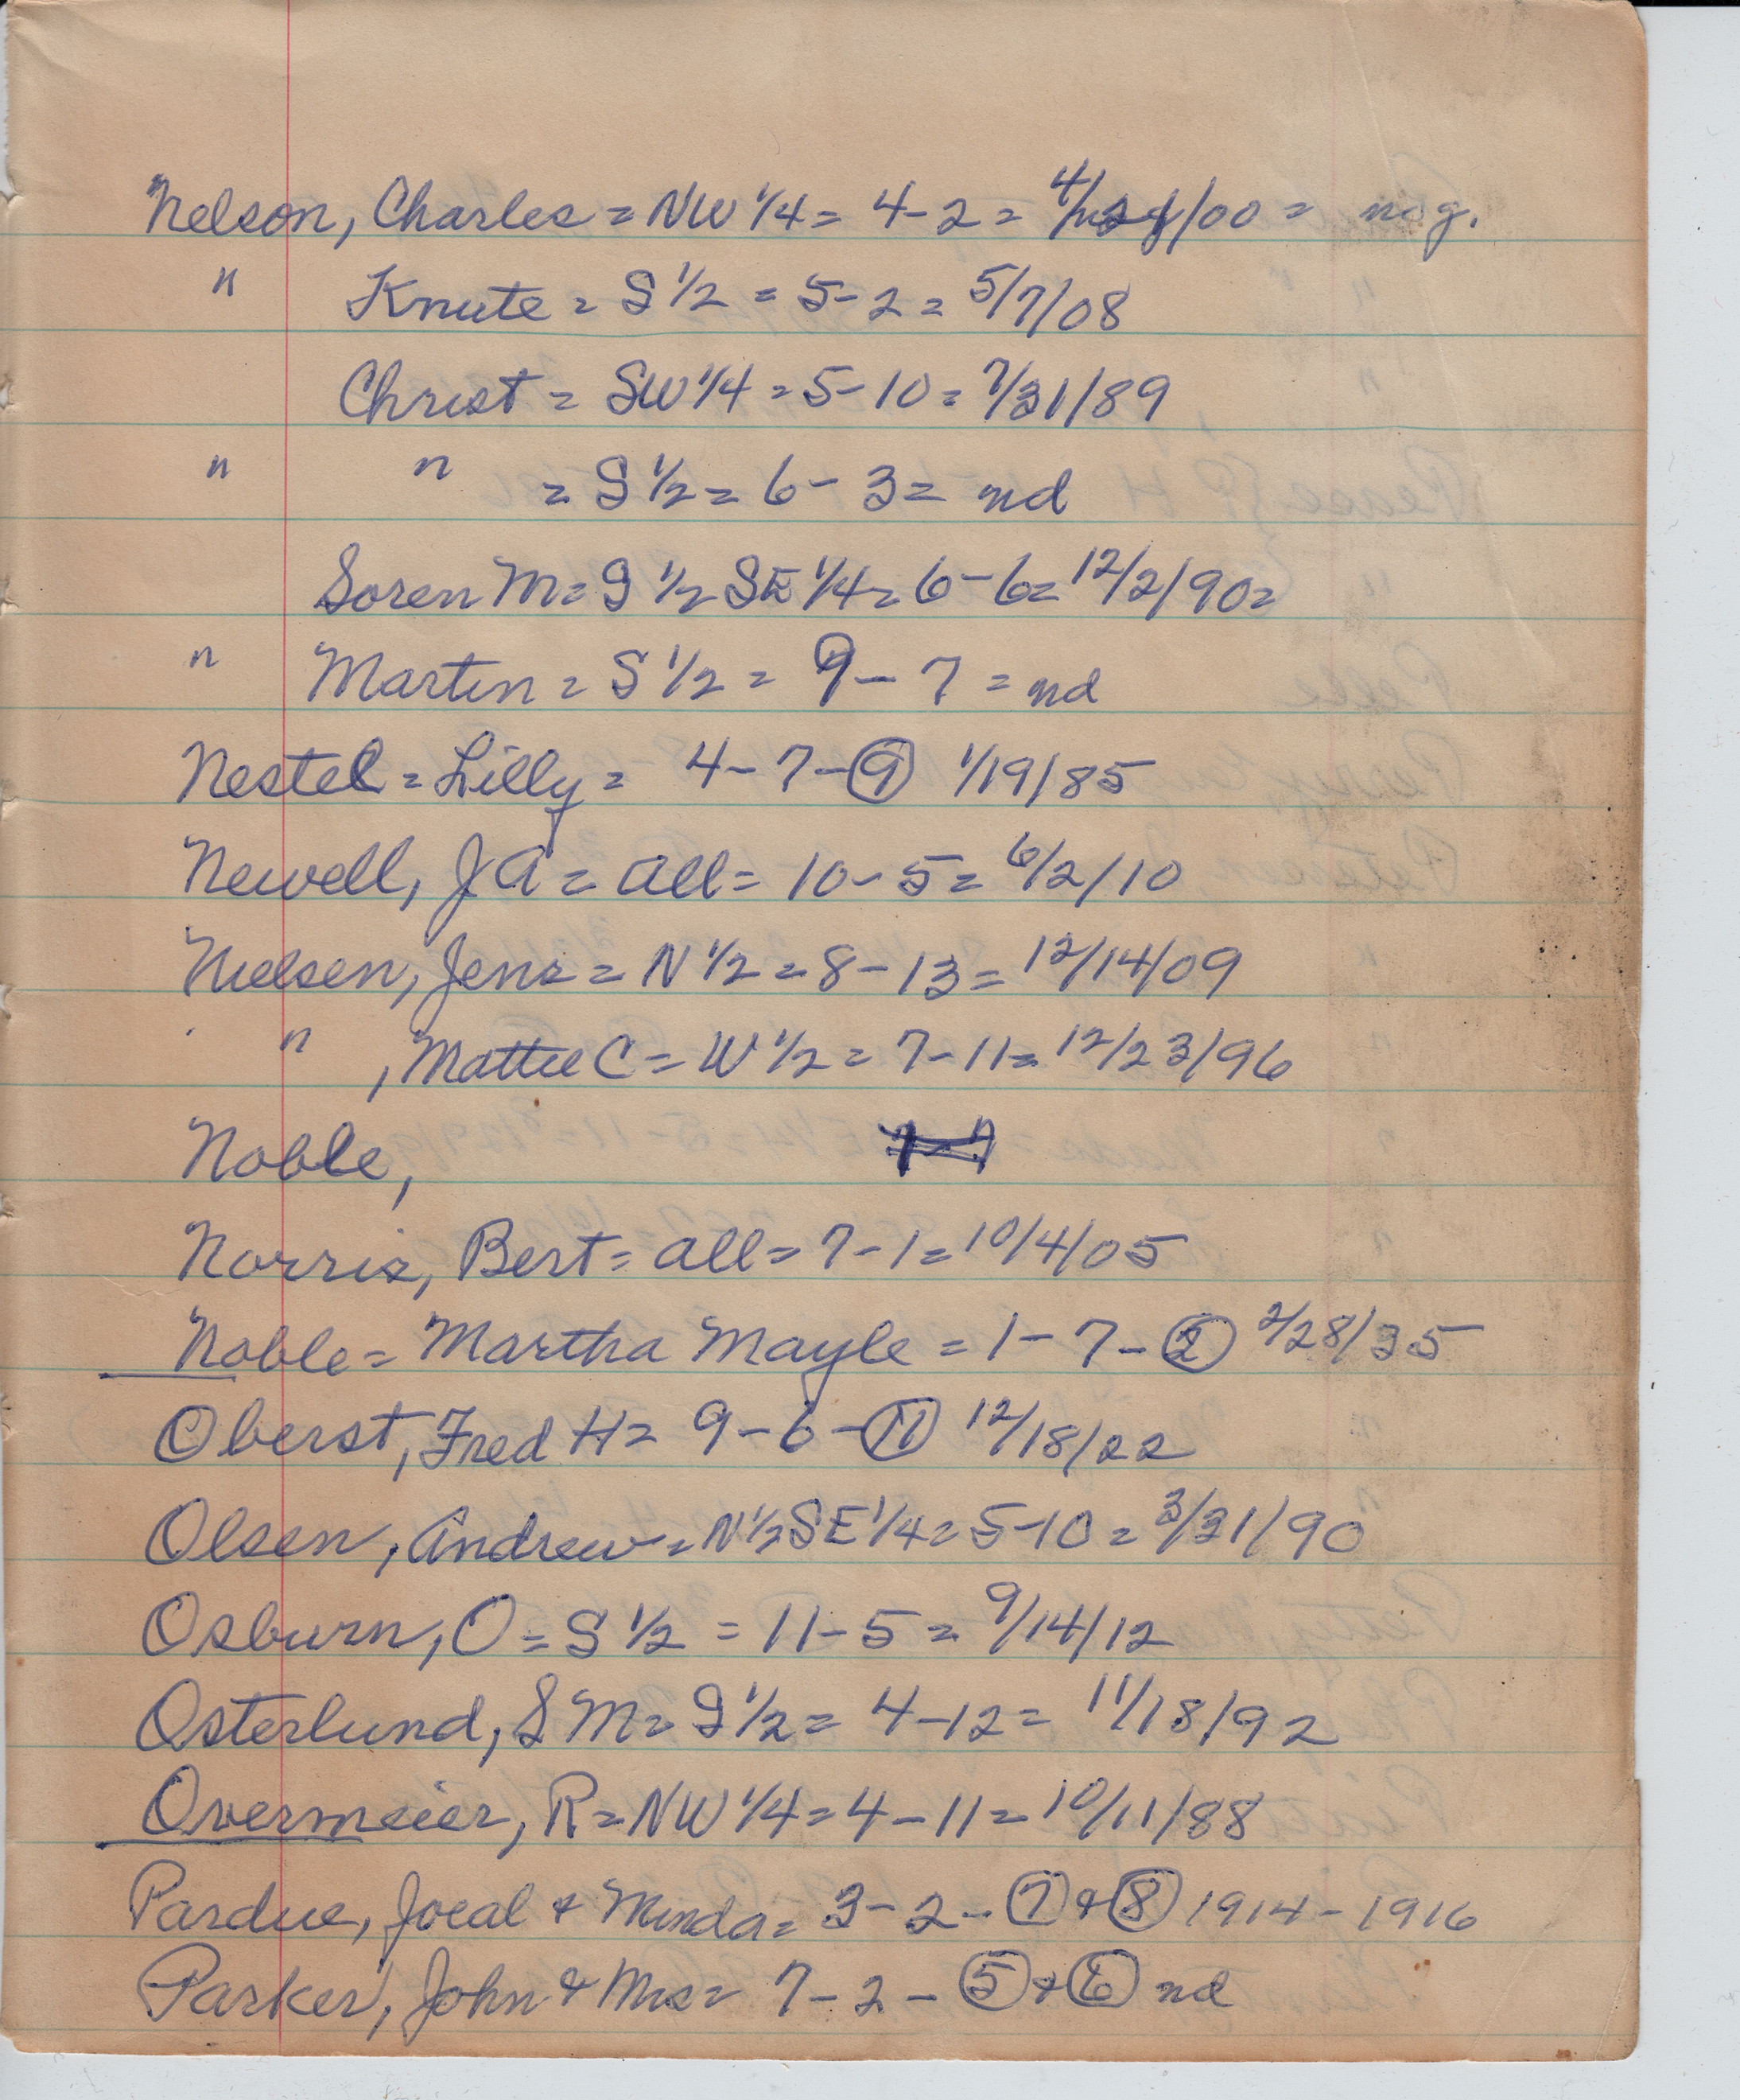 Nelson, Charles = NW 1/4 = 4-2 = 4/ /00 = nog.
" Knute = S 1/2 = 5-2 = 5/7/08
Christ = SW 1/4 = 5-10 = 7/31/89
" " = S 1/2 = 6-3 = nd
Soren M = S 1/2 SE 1/4 = 6-6 = 12/2/90 =
" Martin = S 1/2 = 9-7 = nd
Nestel = Lilly = 4-7-9 1/19/85
Newell, J A = all = 10-5 = 6/2/10
Nielsen, Jens = N 1/2 = 8-13 = 12/14/09
" , Mattie C = W 1/2 = 7-11 = 12/23/96
Noble,
Norris, Bert = all = 7-1 = 10/4/05
Noble = Martha Mayle = 1-7-2 2/28/35
Oberst, Fred H = 9-6-11 12/18/22
Olsen, Andrew = N 1/2 SE 1/4 = 5-10 = 3/31/90
Osburn, O = S 1/2 = 11-5 = 9/14/12
Osterlund, S M = S 1/2 = 4-12 = 11/18/92
Overmeier, R = NW 1/4 = 4-11 = 10/11/88
Pardue, Joeal & Minda = 3-2-7 & 8 1914-1916
Parker, John & Mrs = 7-2-5 & 6 nd